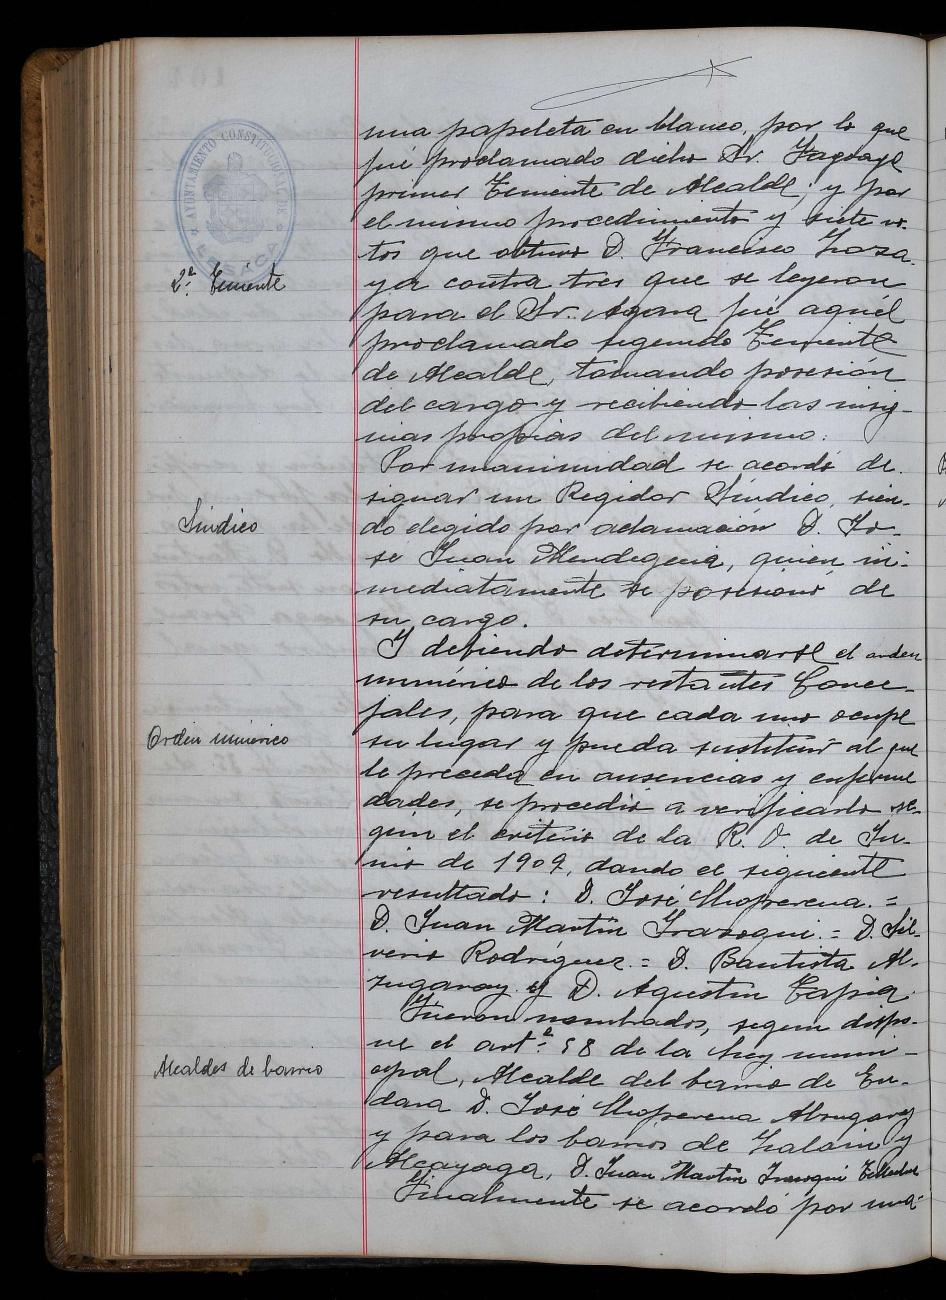 AYUNTAMIENTO CONSTITUCIONAL DE
LESACA
una papeleta en blanco, por lo que
fué proclamado dicho Sr.
primer Teniente de Alcalde; y por
el mismo procedimiento y siete vo-
tos que obtuvo D. Francisco Loza-
2º. Teniente
ya contra tres que se leyeron
para el Sr. Agara fué aquél
proclamado segundo Teniente
de Alcalde, tomando posesión
del cargo y recibiendo las insig-
nias propias del mismo.
Por unanimidad se acordó de-
signar un Regidor Síndico, sien-
Síndico
do elegido por aclamación D. Jo-
sé Juan Mendeguia, quien in-
mediatamente se posesionó de
su cargo.
Y debiendo determinarse el orden
numérico de los restantes Conce-
jales, para que cada uno ocupe
Orden numérico
su lugar y pueda sustituir al que
le preceda en ausencias y enferme
dades, se procedió a verificarlo se-
gún el criterio de la R. O. de Ju-
nio de 1909, dando el siguiente
resultado: D. José Choperena. =
D. Juan Martín Irazoqui. = D. Sil-
verio Rodríguez. = D. Bautista Al-
zugaray y D. Agustín Tapia.
Fueron nombrados, según dispo-
ne el artº. 58 de la ley muni-
Alcaldes de barrio
cipal, Alcalde del barrio de En-
dara D. José Choperena Alzugaray
y para los barrios de Zalain y
Alcayaga, D. Juan Martín Irazoqui
Finalmente se acordó por una-